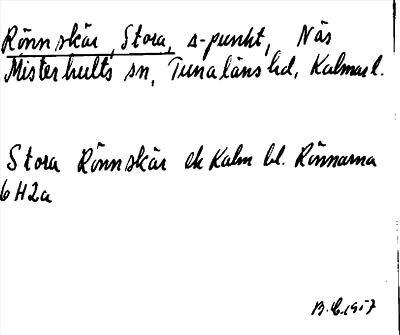 Rönnskär, Stora, s-punkt, Näs
Misterhults sn, Tunaläns hd, Kalmar l.
Stora Rönnskär ek Kalm bl. Rönnarna
6H2a
B.E. 1957